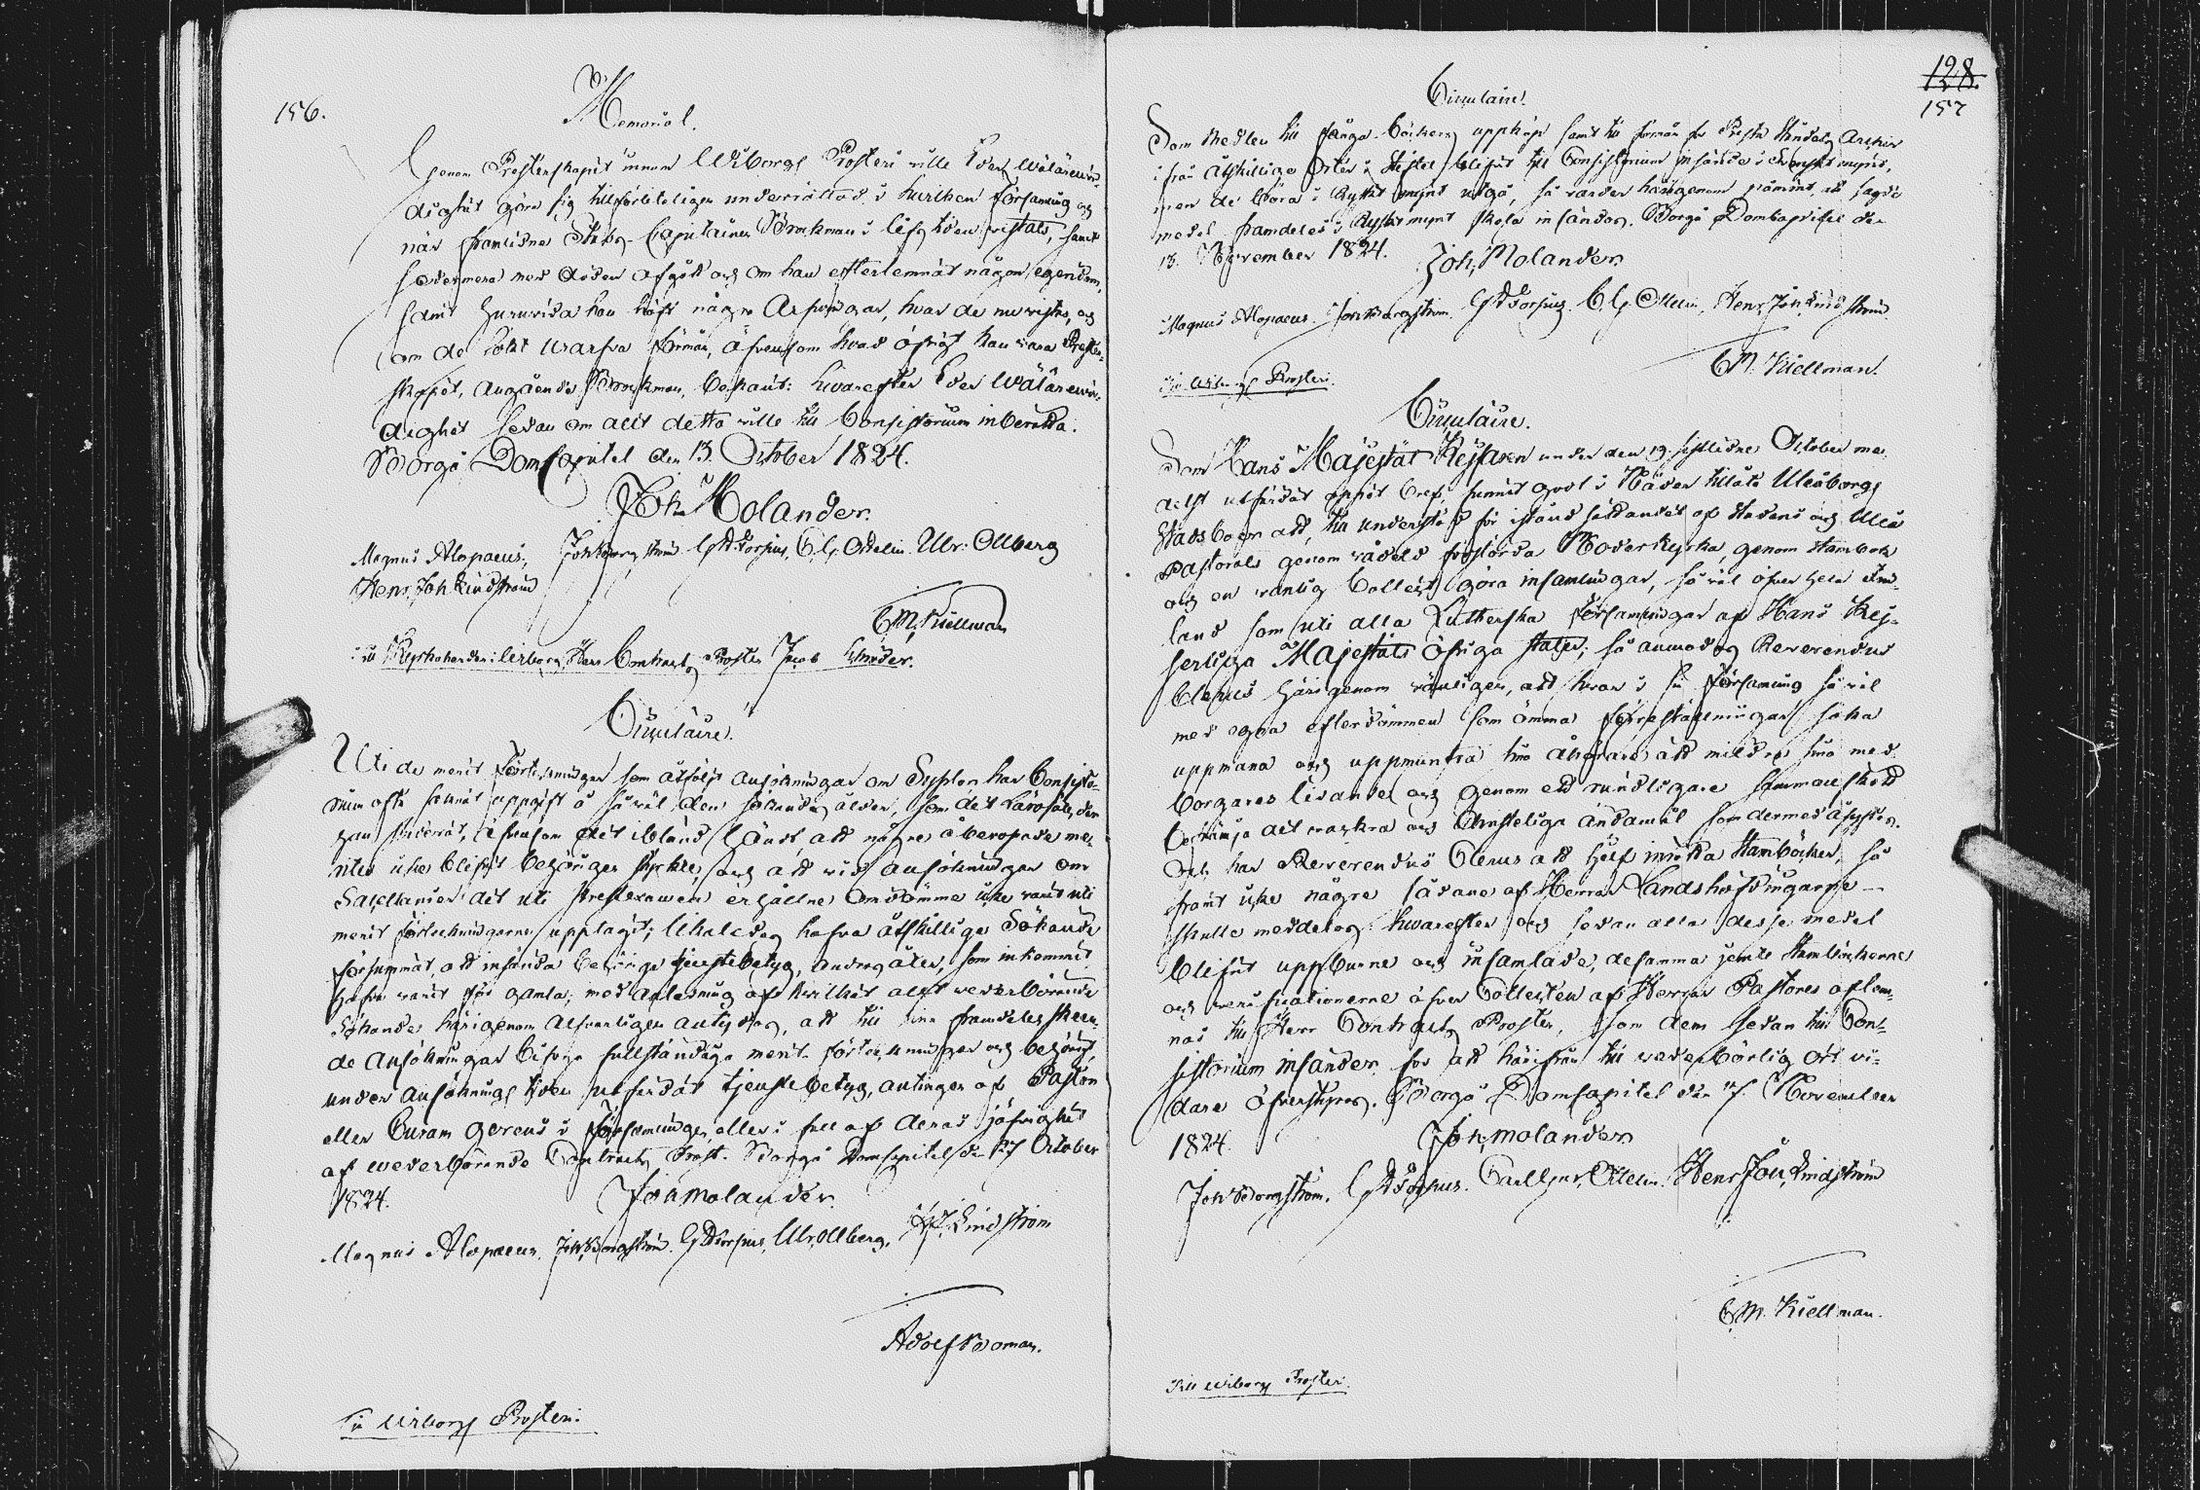 156.
Memorial.
Genom Presterskapet innom Wiborgs Prosteri ville Eder Wälärevör-
dighet göra sig tillförliteligen underrättad, i hvilken Församling och
när framlidne Stabs-Capitainen Brockman i lifstiden vistats, samt
sedermera med döden afgått och om han efterlemnat någon egendom,
samt huruvida han haft några Arfvingar, hvar de nu vistas, och
om de sökt Arfva förmån, äfvensom hvad öfrigt kan vara Prester-
skapet, angående Brockman, bekant: hvarefter Eder Wälärevör-
dighet sedan om allt detta ville till Consistorium inberätta.
Borgå Domcapitel den 13. October 1824.
Joh. Molander.
Magnus Alopaeus, Joh. Borgström G A Forsius, C. G. Ottelin Ulr: Ollberg
Henr. Joh. Lindström
C. M. Kiellman
Till Kyrkoherden i Wiborg, Herr Contracts Prosten Jacob
Circulaire.
Uti de merit förtekningar som åtföljt ansökningar om Sysslor har Consisto-
rium ofta saknat uppgift å så väl den sökandes ålder, som det Lärosäte, der
han studerat, äfvensom det ibland händt, att några åberopade me-
riter icke blifvit behörigen styrkte, och att vid ansökningar om
Sacellanier det uti Prestexamen erhållne Omdömme icke varit uti
merit förtekningarne upptagit; likaledes hafva åtskillige Sökande
försummat, att insända behörige tjenstebetyg, andre åter, som inkommit
hafva varit för gamla; med anledning af hvilket allt vederbörande
Sökande härigenom alfvarligen antydes, att till sina framdeles skeen-
de Ansökningar bifoga fullständiga merit förtekningar och behörigt,
under Ansöknings tiden utfärdat tjenstebetyg, antingen af Pastor
eller Curam gerens i Församlingen, eller i fall af deras jäfvighet
af wederbörande Contracts Prost. Borgå Domcapitel den 27 October
1824.
Joh Molander.
Magnus Alopaeus. Joh Borgström. G A Forsius, Ulr. Ollberg. H. J. Lindström
Adolf Boman.
Till Wiborgs Prosteri.
128.
157
Circulaire.
Som Medlen till Fänga Böckers uppköp samt till förmån för Preste Ståndets Archiv
ifrån åtskillige Orter i Stiftet blifvit till Consistorium insände i Svenskt mynt,
men de böra i Ryskt mynt utgå, så varder härigenom påmint, att sagde
medel framdeles i Ryskt mynt skola insändas. Borgå Domcapitel den
13. November 1824.
Joh, Molander
Magnus Alopaeus. Joh Borgström. G A Forsius. C. G. Ottelin, Henr. Joh Lindström.
C. M. Kiellman.
Till Wiborgs Prosteri.
Circulaire.
Som Hans Majestät Kejsaren under den 19 sistlidne October me-
delst utfärdat öppet bref, funnit godt i Nåder tillåta Uleåborgs
Stads boer att, till understöd för iståndsättandet af Stadens och Uleå
Pastorats genom vådeld förstörda Moderkyrka, genom Stambok
och en vanlig Collect, göra insamlingar, så väl öfver hela Fin-
land som uti alla Lutherska Församlingar af Hans Kej-
serliga Majestäts Öfriga stater; så anmodas Reverendus
Clerus härigenom vänligen, att hvar i sin Församling så väl
med egna efterdömmen som ömma föreställningar söka
uppmana och uppmuntra sina åhörare att mildra sina med-
borgares lidande och genom ett rundligare sammanskott
befrämja det vackra och Christeliga ändamål som dermed åsyftas.
Och har Reverendus Clerus att sjelf inrätta Stamböcker, så
framt icke några sådane af Herrar Landshöfdingarne
skulle meddelas. hvarefter och sedan alla desse medel
blifvit uppburne och insamlade, desamma jemte Stamböckerne
och verificationerne öfver Collecten af Herrar Pastores aflem-
nas till Herr Contracts Prosten, som dem sedan till Con-
sistorium insänder, för att härifrån till vederbörlig ort vi-
dare öfverstyras. Borgå Domcapitel den 17. November
1824.
Joh, Molander
Joh Borgström. G A Forsius. Carl Gust. Ottelin. Henr Joh, Lindström
C. M. Kiellman.
Till Wiborgs Prosteri.